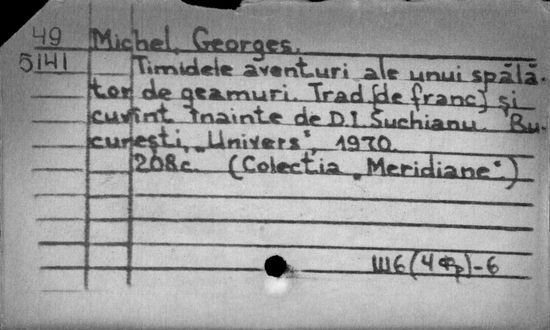 49 Michel, Georges.
5141 Timidele aventuri ale unui spălă-
tor de geamuri. Trad. [de franc] și
cuvînt înainte de D.I. Suchianu. Bu-
curești, „Univers”, 1970.
208c. (Colectia „Meridiane”)
Ш6(4Фр)-6